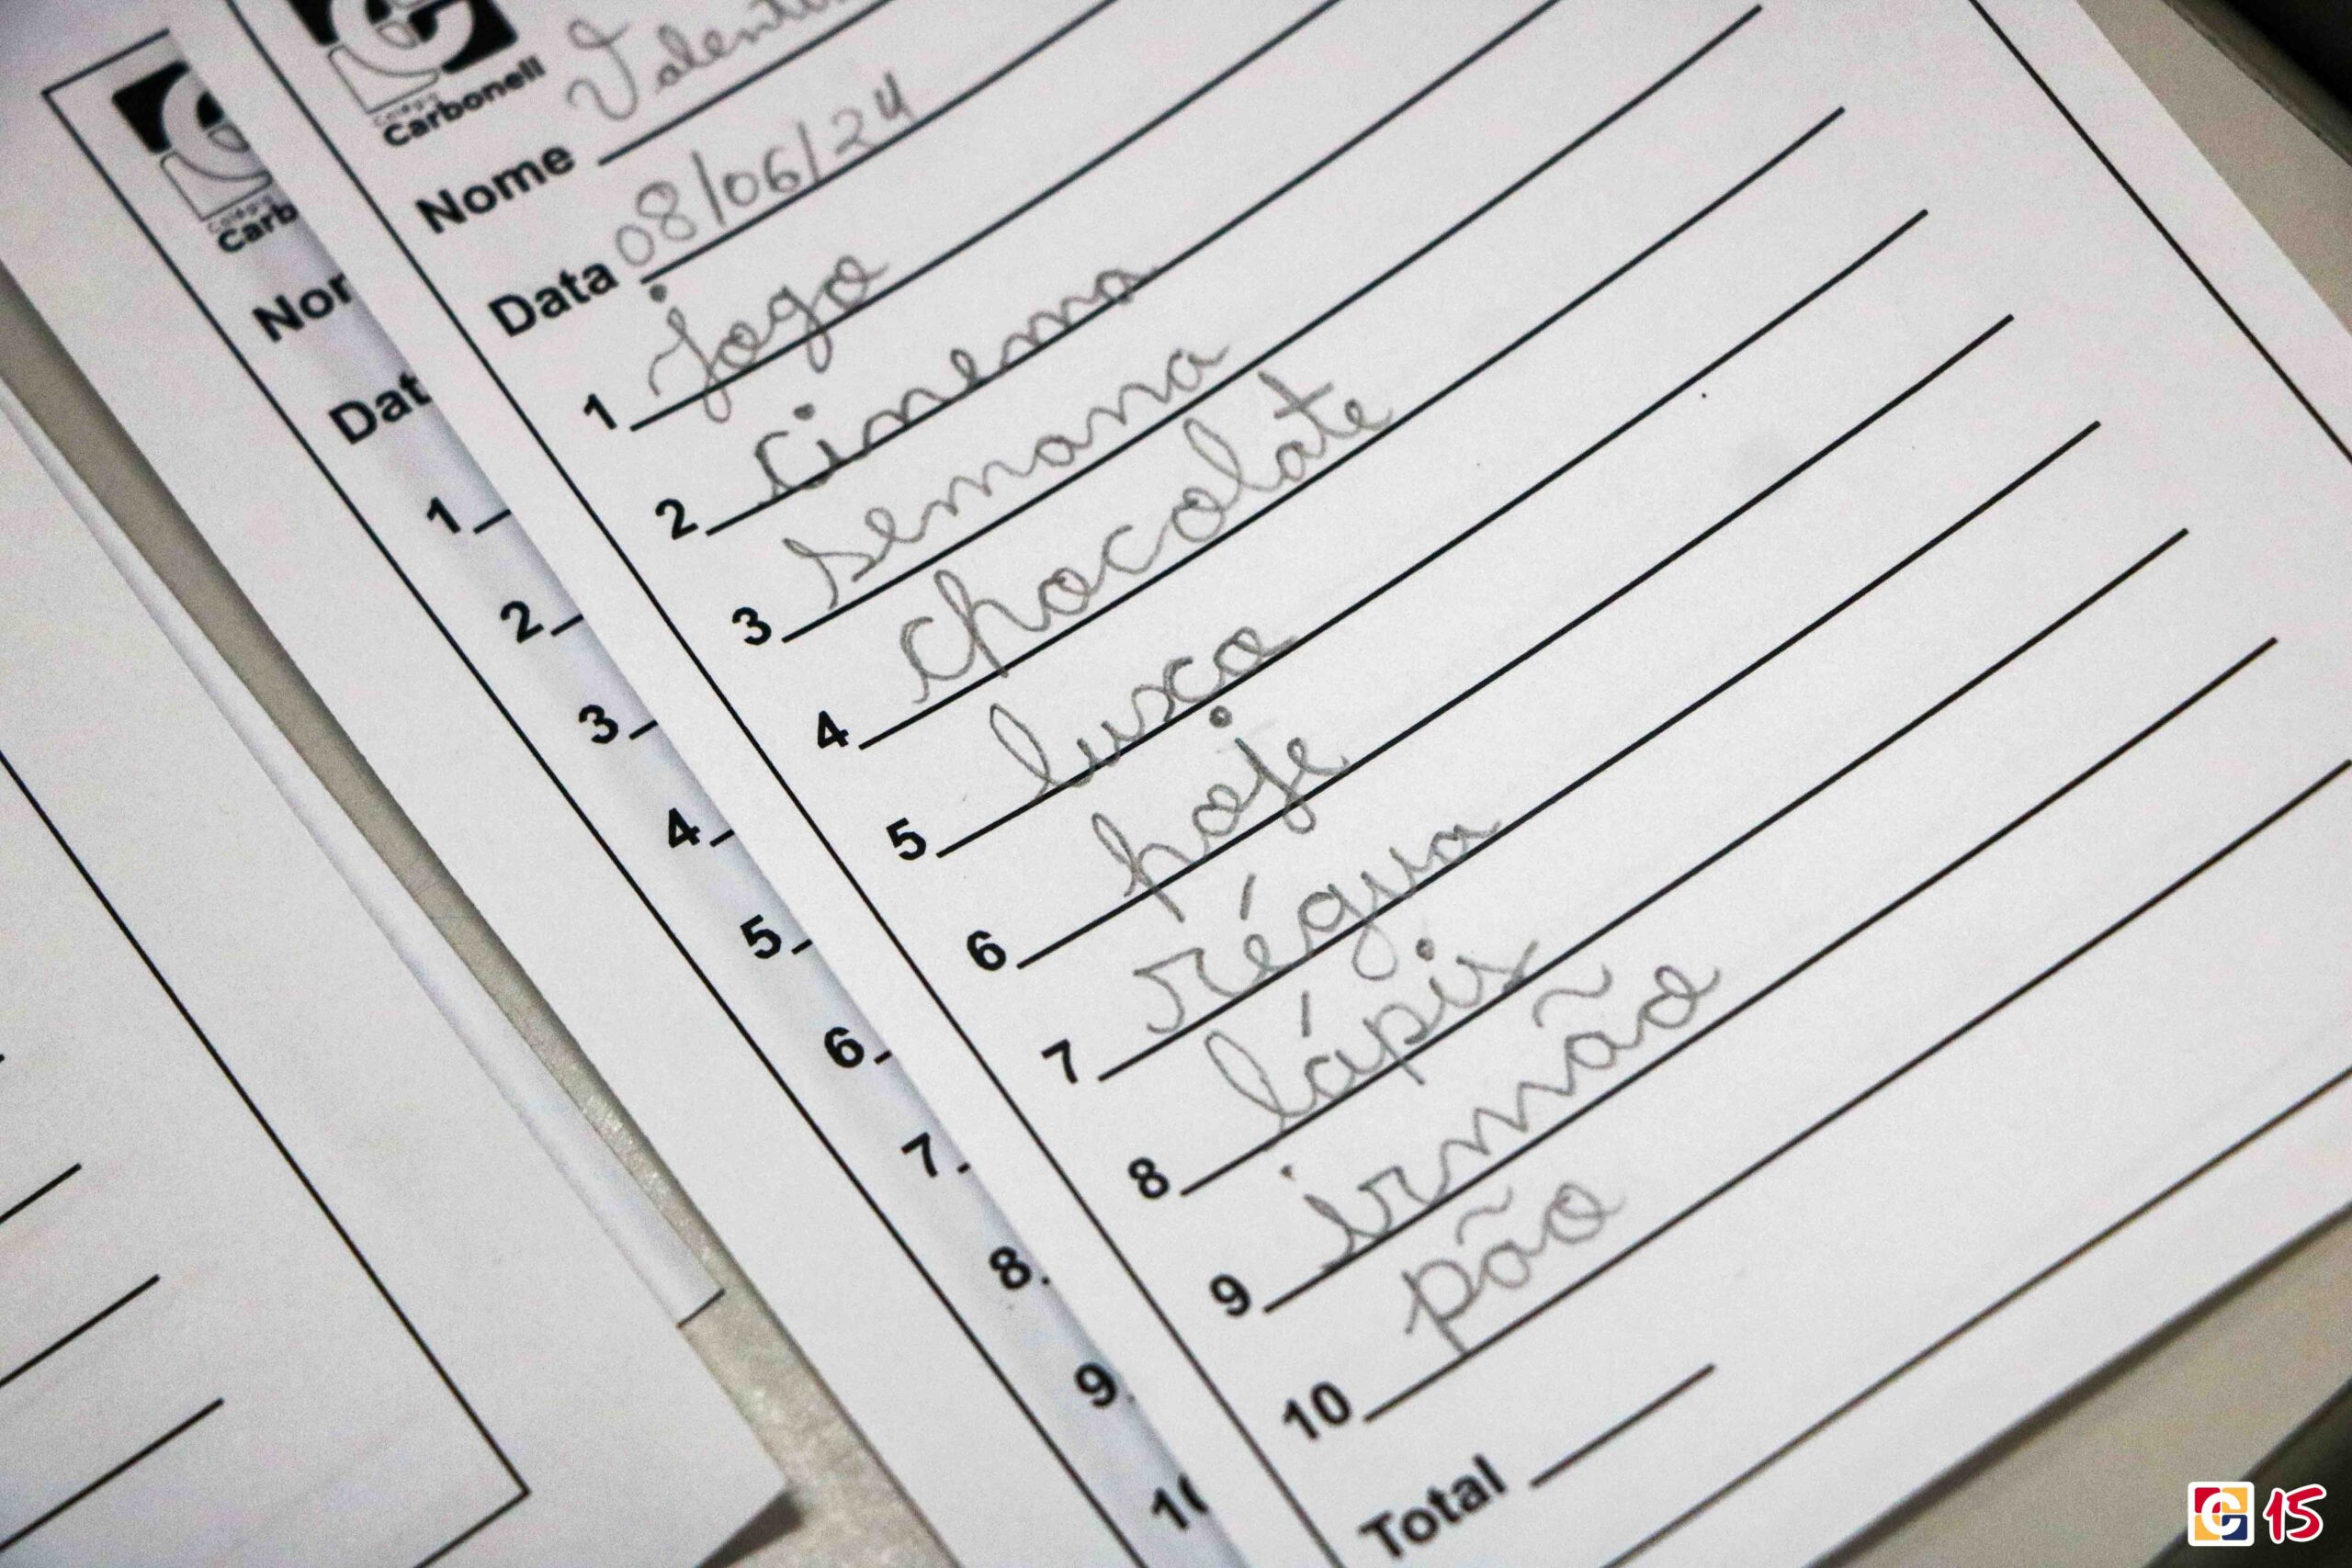 Colégio
Carbonell
Nome Valenti
Data 08/06/24
1 jogo
2 cinema
3 semana
4 chocolate
5 luxo
6 hoje
7 régua
8 lápis
9 irmão
10 pão
Total
Carb
Nor
Dat
1
2
3
4
5
6
7
8
9
10
C 15